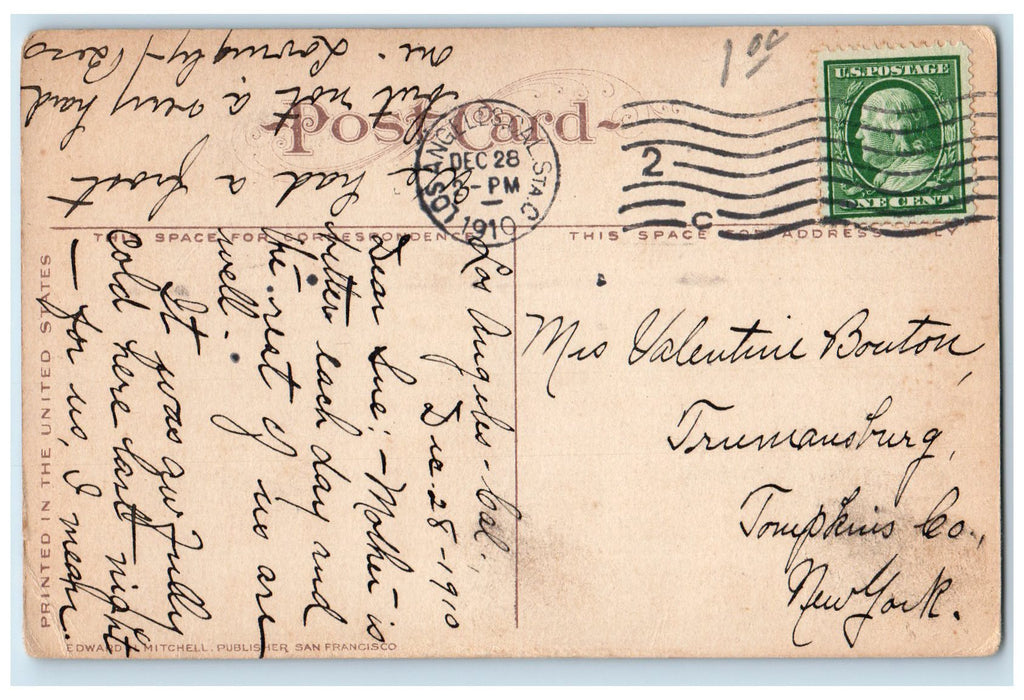 1 00
U.S. POSTAGE
ONE CENT
Post Card
LOS ANGELES, CAL. STA. C
DEC 28
2-PM
1910
2
C
THIS SPACE FOR CORRESPONDENCE
THIS SPACE FOR ADDRESS ONLY
PRINTED IN THE UNITED STATES
EDWARD H. MITCHELL, PUBLISHER SAN FRANCISCO
Los Angeles - Cal.,
Dec. 28 - 1910
Dear Sue; - Mother is
better each day and
the rest of us are
well.
It was awfully
cold here last night
- for us, I mean.
had a frost
but not a very hard
one. Lovingly -
Mrs Valentine Bouton,
Trumansburg,
Tompkins Co.,
New York.